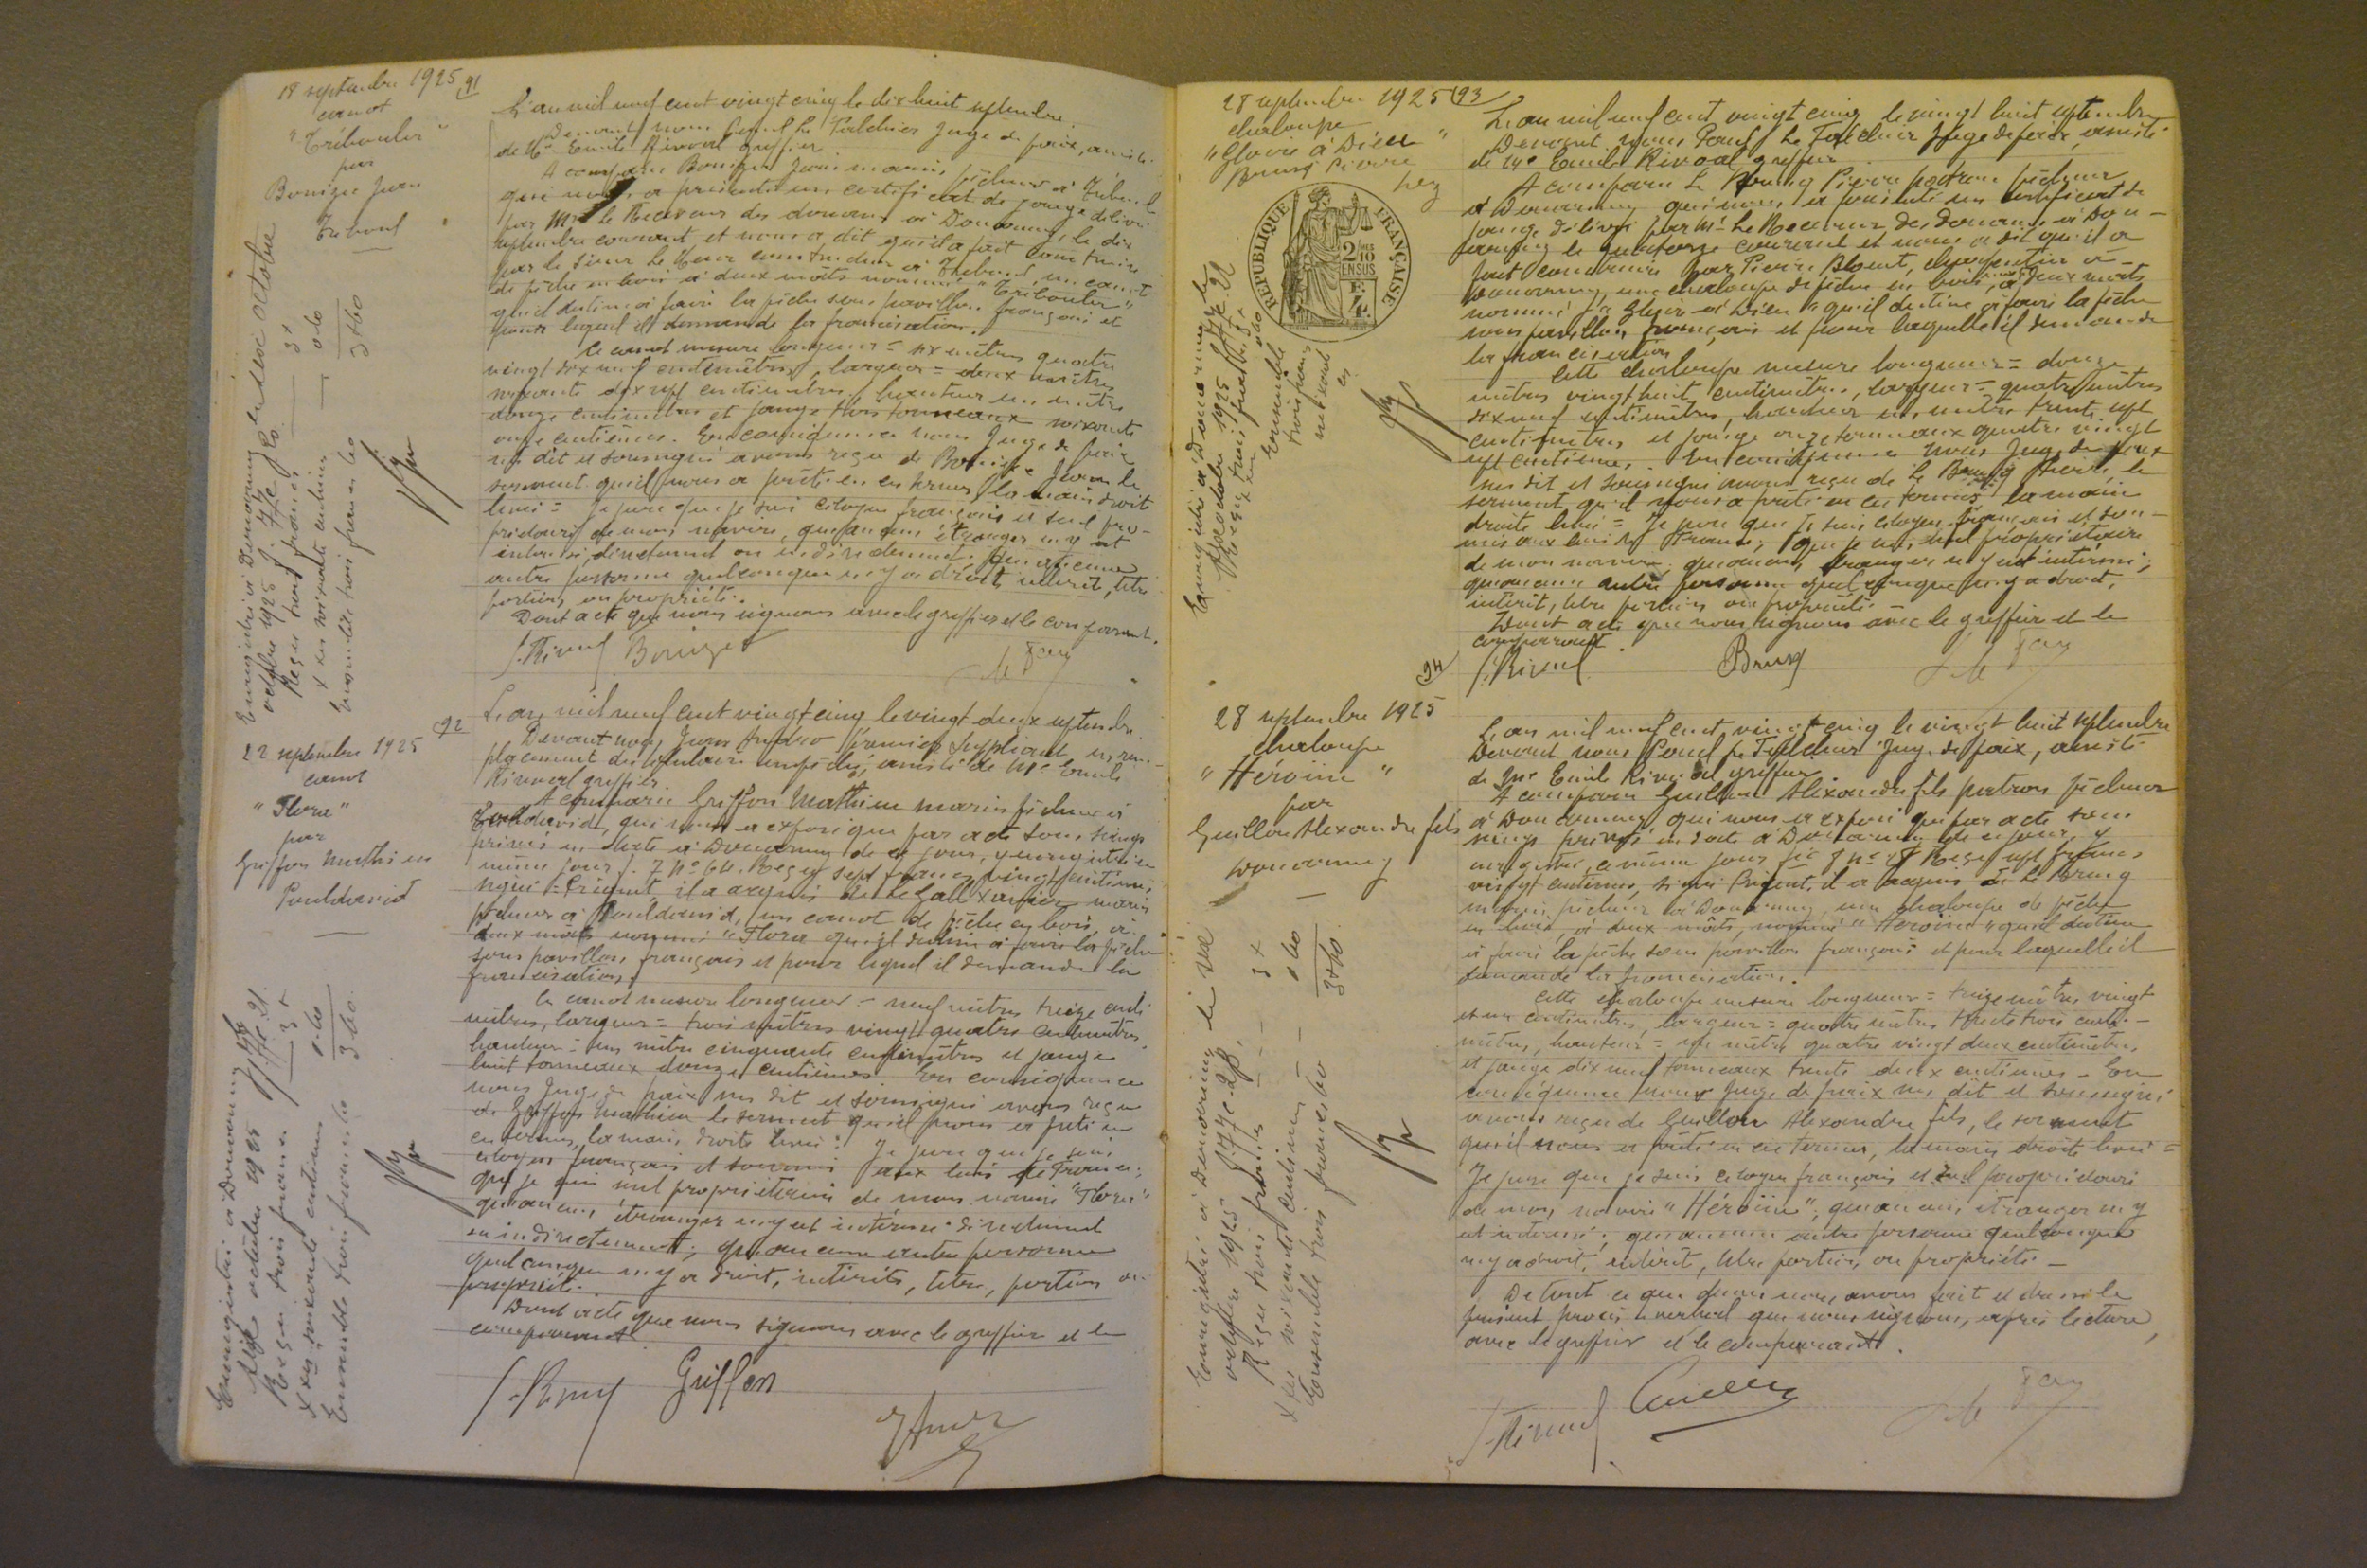 18 septembre 1925
canot
"Tribouler"
par
Bonizec Jean
Tréboul
91
L'an mil neuf cent vingt cinq le dix huit septembre.
Devant nous Paul Le Juge de paix, assisté
de Me Emile Rivoal greffier
A comparu Bonizec Jean marin pêcheur à Tréboul
qui nous a présenté un certificat de jauge délivré
par Mr le Receveur des douanes à Douarnenez le dix
septembre courant et nous a dit qu'il a fait construire
par le sieur Le constructeur à Tréboul un canot
de pêche en bois à deux mâts nommé "Tribouler"
qu'il destine à faire la pêche sous pavillon français et
pour lequel il demande la francisation.
Ce canot mesure longueur = six mètres quatre
vingt dix neuf centimètres, largeur = deux mètres
soixante dix sept centimètres, hauteur un mètre
douze centimètres et jauge trois tonneaux soixante
onze centièmes. En conséquence nous Juge de paix
sus dit et soussigné avons reçu de Bonizec Jean le
serment qu'il nous a prêté en ces termes la main droite
levée = Je jure que je suis citoyen français et seul pro-
priétaire de mon navire, qu'aucun étranger n'y est
intéressé, directement ou indirectement, qu'aucune
autre personne quelconque n'y a droit, intérêt, titre
portion, ou propriété.
Dont acte que nous signons avec le greffier et le comparant.
E. Rivoal Bonizec
Enregistré à Douarnenez le six octobre
octobre 1925
Reçu trois francs 3 "
x ces soixante centimes 0.60
Ensemble trois francs 60 3 60
22 septembre 1925
canot
"Flora"
par
Griffon Mathieu
Pouldavid
92
L'an mil neuf cent vingt cinq le vingt deux septembre.
Devant nous, Jean premier suppléant en rem-
placement du titulaire empêché, assisté de Me Emile
Rivoal greffier
A comparu Griffon Mathieu marin pêcheur à
Pouldavid, qui nous a exposé que par acte sous seings
privés en date à Douarnenez de ce jour, y enregistré ce
même jour f. 7 No 64. Reçu sept francs vingt centimes,
signé = Prigent, il a acquis de Le Gall Xavier marin
pêcheur à Pouldavid, un canot de pêche en bois, à
deux mâts nommé "Flora" qu'il destine à faire la pêche
sous pavillon français et pour lequel il demande la
francisation.
Ce canot mesure longueur = neuf mètres treize centi
mètres, largeur = trois mètres vingt quatre centimètres
hauteur = un mètre cinquante centimètres et jauge
huit tonneaux douze centièmes. En conséquence
nous Juge de paix sus dit et soussigné avons reçu
de Griffon Mathieu le serment qu'il nous a prêté en
ces termes, la main droite levée : Je jure que je suis
citoyen français et soumis aux lois de France;
que je suis seul propriétaire de mon navire "Flora"
qu'aucun étranger n'y est intéressé directement
ou indirectement; qu'aucune autre personne
quelconque n'y a droit, intérêts, titre, portion ou
propriété.
Dont acte que nous signons avec le greffier et le
comparant
E. Rivoal Griffon
Enregistré à Douarnenez le
six octobre 1925
Reçu trois francs 3 "
x ces soixante centimes 0.60
Ensemble trois francs 60 3 60.
28 septembre 1925
chaloupe
"Gloire à Dieu"
Brusq Pierre
93
RÉPUBLIQUE FRANÇAISE
2/10 EN SUS
4
L'an mil neuf cent vingt cinq le vingt huit septembre
Devant nous Paul Le Juge de paix, assisté
de Me Emile Rivoal greffier
A comparu Le Brusq Pierre patron pêcheur
à Douarnenez qui nous a présenté un certificat de
jauge délivré par Mr Le Receveur des douanes à Dou-
arnenez le quatorze courant et nous a dit qu'il a
fait construire par Pierre charpentier à
Douarnenez, une chaloupe de pêche en bois, à deux mâts
nommé "Gloire à Dieu" qu'il destine à faire la pêche
sous pavillon français et pour laquelle il demande
la francisation
Cette chaloupe mesure longueur = douze
mètres vingt huit centimètres, largeur = quatre mètres
dix neuf centimètres, hauteur un mètre trente sept
centimètres et jauge onze tonneaux quatre vingt
sept centièmes. En conséquence nous Juge de paix
sus dit et soussigné avons reçu de Le Brusq Pierre le
serment qu'il nous a prêté en ces termes la main
droite levée = Je jure que je suis citoyen français et sou-
mis aux lois de France; que je suis seul propriétaire
de mon navire; qu'aucun étranger n'y est intéressé;
qu'aucune autre personne quelconque n'y a droit,
intérêt, titre portion ou propriété
Dont acte que nous signons avec le greffier et le
comparant.
E. Rivoal Brusq
Enregistré à Douarnenez le
octobre 1925
Reçu trois francs
Ensemble
trois francs
soixante
28 septembre 1925
chaloupe
"Héroïne"
par
Guillou Alexandre fils
Douarnenez
94
L'an mil neuf cent vingt cinq le vingt huit septembre
Devant nous Paul Le Juge de paix, assisté
de Me Emile Rivoal greffier
A comparu Guillou Alexandre fils patron pêcheur
à Douarnenez qui nous a exposé que par acte sous
seings privés en date à Douarnenez de ce jour, y
enregistré ce même jour Reçu sept francs
vingt centimes, signé Prigent, il a acquis de Le Brusq
marin pêcheur à Douarnenez, une chaloupe de pêche
en bois, à deux mâts, nommé "Héroïne" qu'il destine
à faire la pêche sous pavillon français et pour laquelle il
demande la francisation.
Cette chaloupe mesure longueur = treize mètres vingt
et un centimètres, largeur = quatre mètres trente trois centi-
mètres, hauteur = un mètre quatre vingt deux centimètres
et jauge dix neuf tonneaux trente deux centièmes - En
conséquence nous Juge de paix sus dit et soussigné
avons reçu de Guillou Alexandre fils, le serment
qu'il nous a prêté en ces termes, la main droite levée =
Je jure que je suis citoyen français et seul propriétaire
de mon navire "Héroïne"; qu'aucun étranger n'y
est intéressé; qu'aucune autre personne quelconque
n'y a droit, intérêt, titre portion, ou propriété -
De tout ce que dessus nous avons fait et dressé le
présent procès verbal que nous signons, après lecture,
avec le greffier et le comparant.
E. Rivoal Guillou
Enregistré à Douarnenez le six
octobre 1925
Reçu trois francs 3 "
x ces soixante centimes 0 60
Ensemble trois francs 60 3 60.